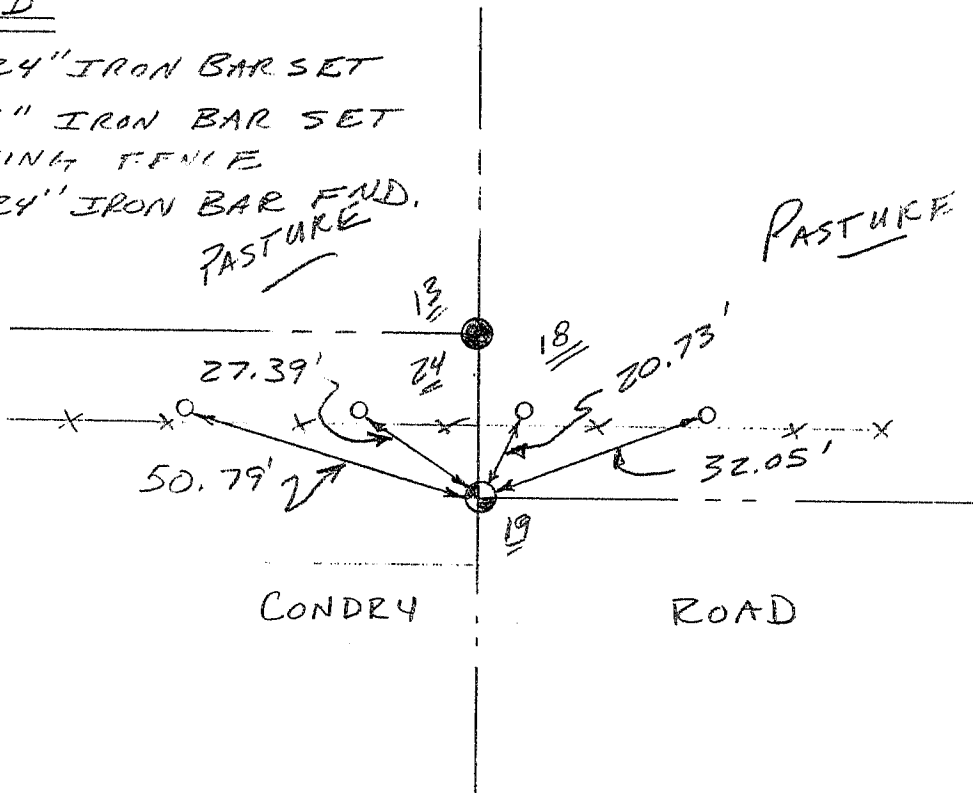 D
24" IRON BAR SET
" IRON BAR SET
ING FENCE
24" IRON BAR FND.
PASTURE
PASTURE
13
18
24
27.39'
20.73'
50.79'
32.05'
19
CONDRY ROAD